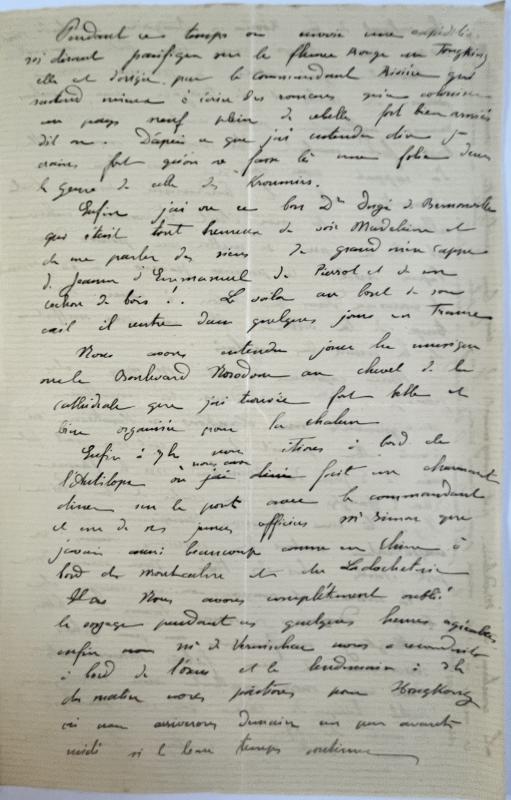 Pendant ce temps on envoie une expédition
soi disant pacifique sur le fleuve Rouge au Tongking
elle est dirigée par le commandant Rivière qui
mieux à écrire des romans qu'à coloniser
un pays neuf plein de rebelle fort bien armés
dit on. D'après ce que j'ai entendu dire je
crains fort qu'on ne fasse là une folie dans
le genre de celle des Kroumirs.
Enfin j'ai vu ce bon Dr de
qui était tout heureux de voir Madeleine et
de me parler des siens de grand mère
de Jeanne d'Emmanuel de Pierrot et de son
cochon de bois!. Le voila au bout de son
exil il rentre dans quelques jours en France
Nous avons entendu jouer la musique
sur le Boulevard Norodom au chevet de la
cathédrale que j'ai trouvée fort belle et
bien organisée pour la chaleur
Enfin à 7h nous étions à bord de
l'Antilope où nous avons fait un charmant
diner sur le pont avec le commandant
et un de ses jeunes officiers Mr Simon que
j'avais connu beaucoup comme en Chine à
bord du Montcalm et du
Nous avons complètement oublié
le voyage pendant ces quelques heures agréables
enfin Mr de nous a reconduits
à bord de et le lendemain à 3h
du matin nous partions pour HongKong
où nous arriverons demain un peu avant
midi si le beau temps continue